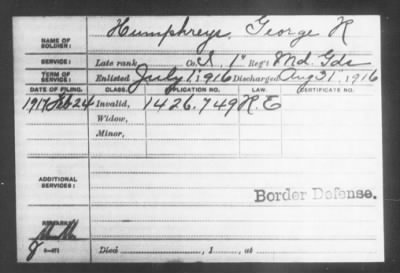 NAME OF SOLDIER: Humphreys, George R
SERVICE: Late rank Co. I, 1" Reg't Md. Gds
TERM OF SERVICE: Enlisted July 1, 1916 Discharged Aug 31, 1916
DATE OF FILING. CLASS. APPLICATION NO. LAW. CERTIFICATE NO.
1917 Feb 24 Invalid, 1.426.749 R.E
Widow,
Minor,
ADDITIONAL SERVICES:
Border Defense.
REMARKS:
Died , 1 , at